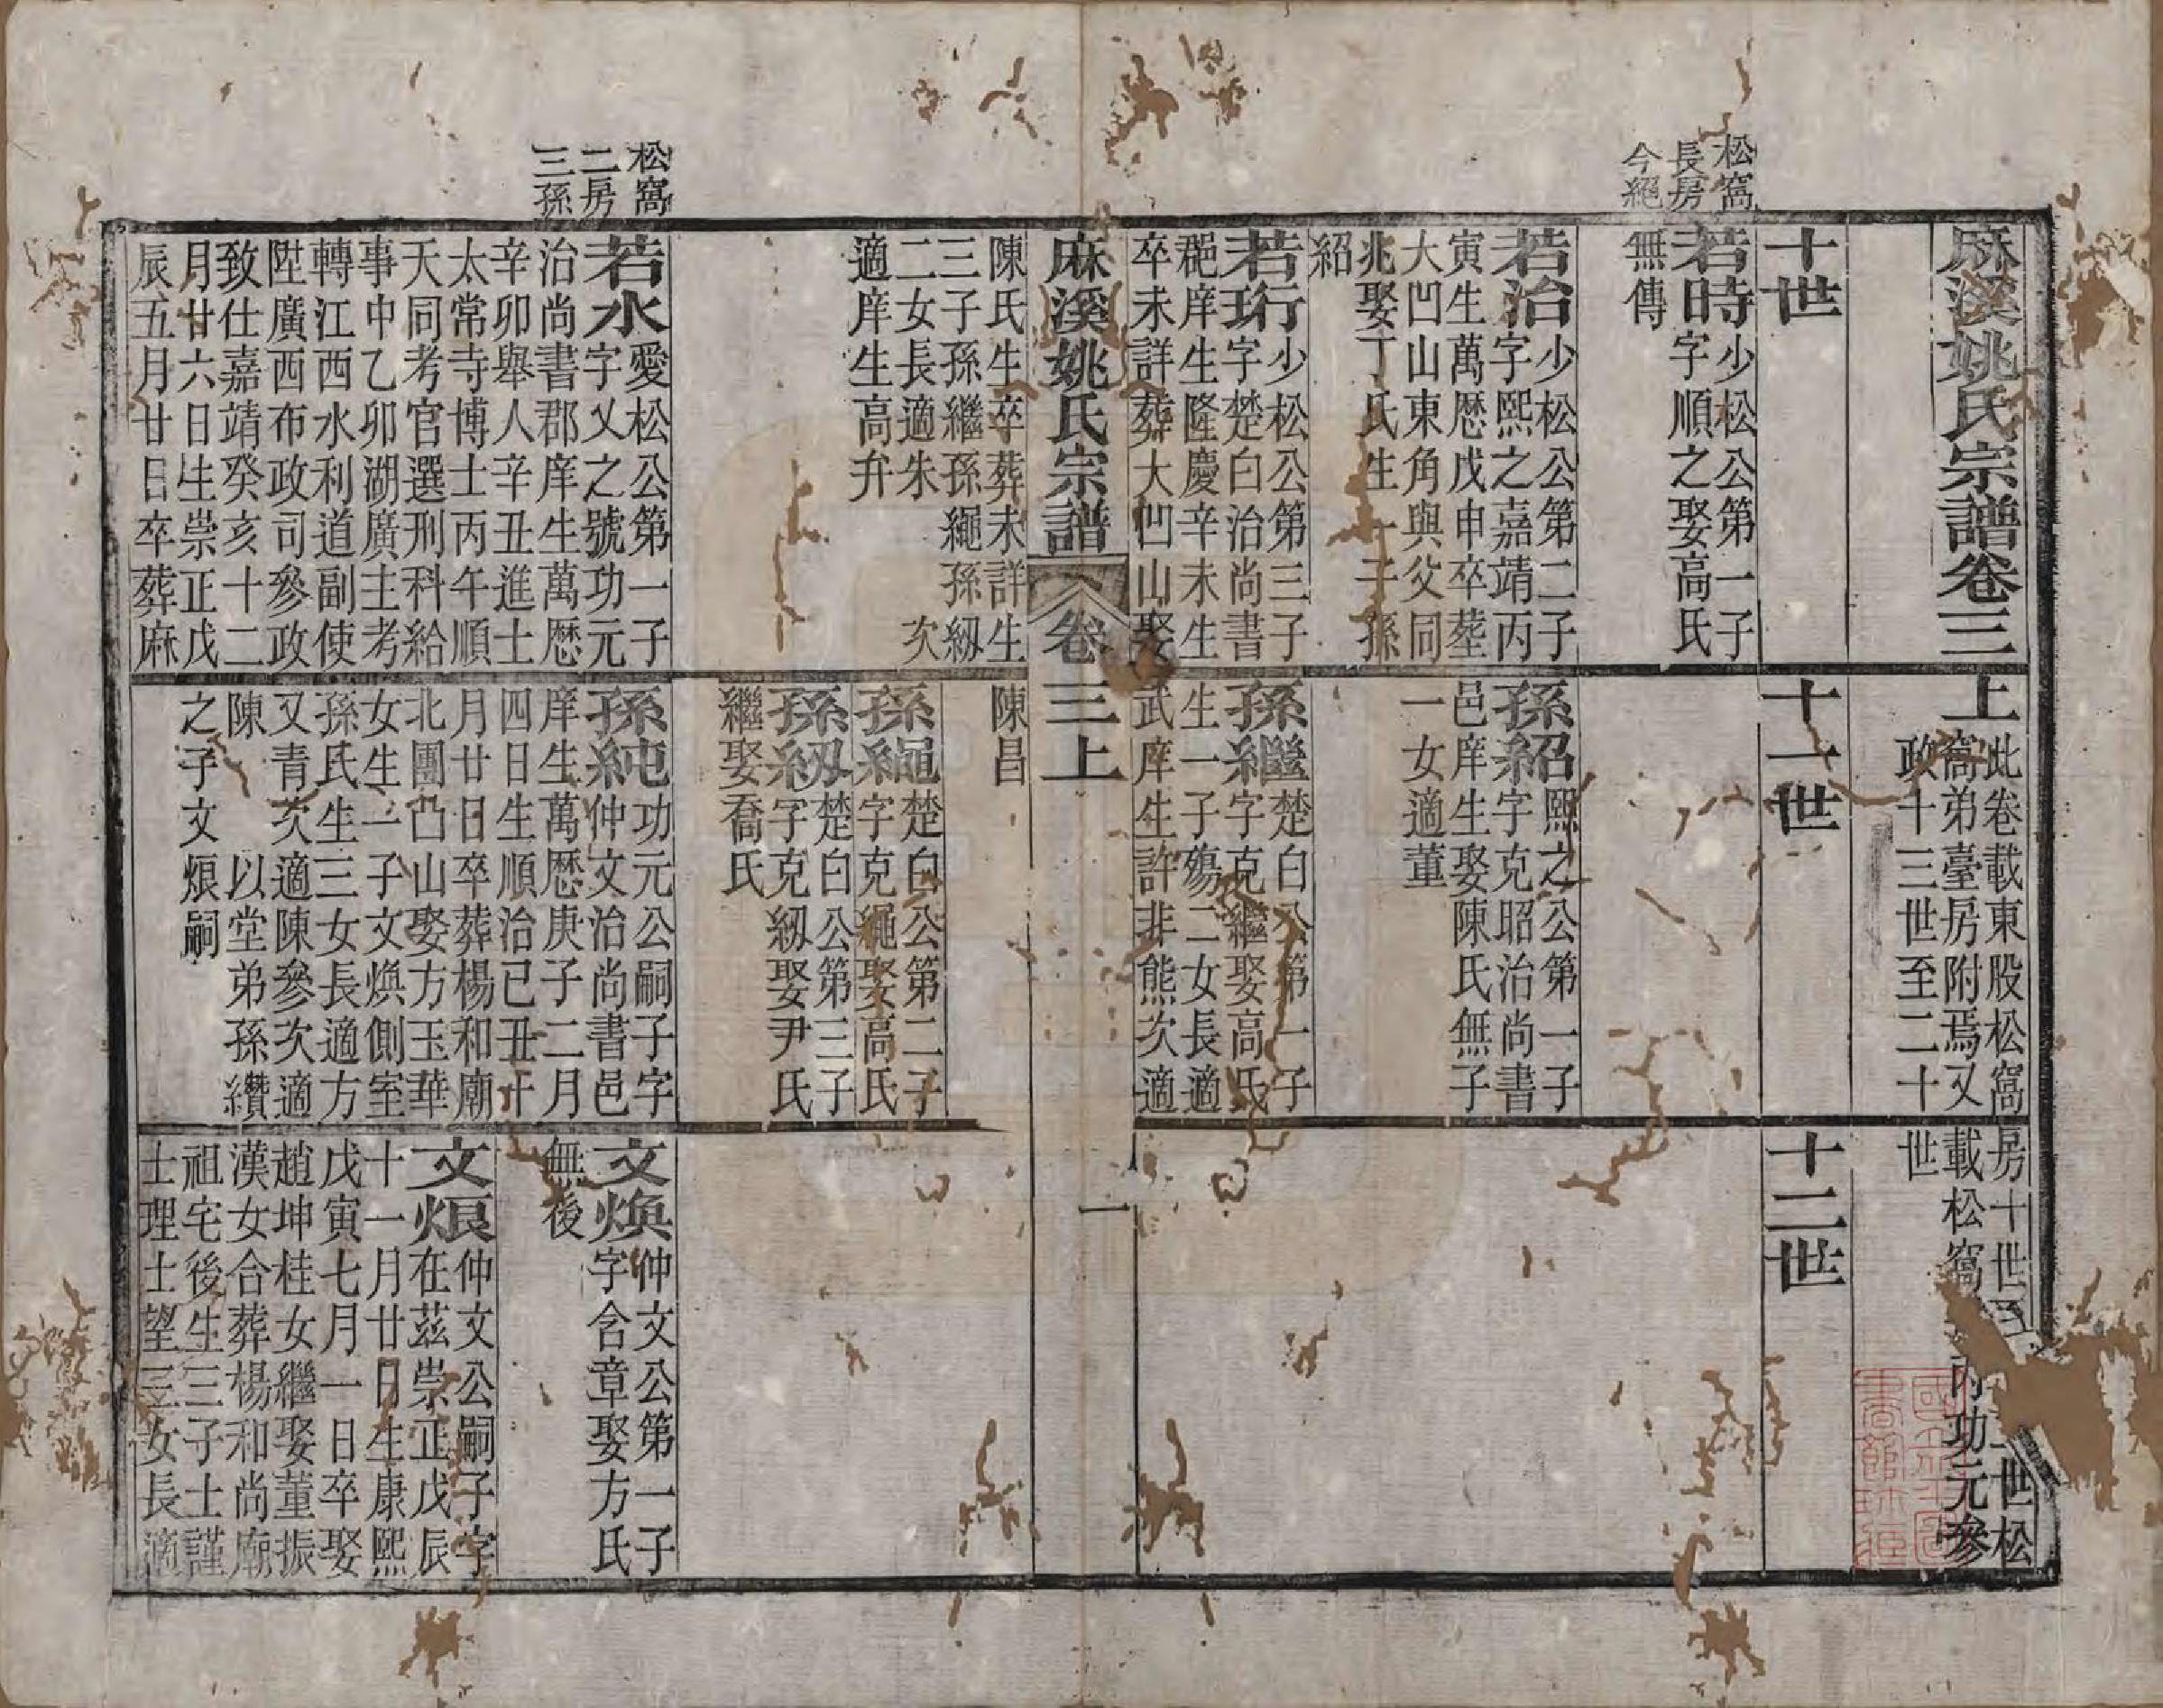 麻溪姚氏宗譜卷三上
此卷載東股松窩房十世至 世松
窩弟臺房附焉又載松窩 功元參
政十三世至二十世
十世
十一世
十二世
松窩
長房
今絕
若時少松公第一子
字順之娶高氏
無傳
若治少松公第二子
字熙之嘉靖丙
寅生萬厯戊申卒塟
大凹山東角與父同
兆娶丁氏生一子孫
紹
若珩少松公第三子
字楚白治尚書
郡庠生隆慶辛未生
卒未詳葬大凹山娶
孫紹熙之公第一子
字克昭治尚書
邑庠生娶陳氏無子
一女適董
孫繼楚白公第一子
字克繼娶高氏
生一子殤二女長適
武庠生許非熊次適
麻溪姚氏宗譜
卷三上
一
陳氏生卒葬未詳生
三子孫繼孫繩孫紉
二女長適朱 次
適庠生高弁
陳昌
孫繩楚白公第二子
字克繩娶高氏
孫紉楚白公第三子
字克紉娶尹氏
繼娶喬氏
松窩
二房
三孫
若水愛松公第一子
字乂之號功元
治尚書郡庠生萬厯
辛卯舉人辛丑進士
太常寺博士丙午順
天同考官選刑科給
事中乙卯湖廣主考
轉江西水利道副使
陞廣西布政司參政
致仕嘉靖癸亥十二
月廿六日生崇正戊
辰五月廿日卒葬麻
孫純功元公嗣子字
仲文治尚書邑
庠生萬厯庚子二月
四日生順治已丑十
月廿日卒葬楊和廟
北團凸山娶方玉華
女生一子文煥側室
孫氏生三女長適方
又青次適陳參次適
陳 以堂弟孫纘
之子文烺嗣
文煥仲文公第一子
字含章娶方氏
無後
文烺仲文公嗣子字
在茲崇正戊辰
十一月廿日生康熙
戊寅七月一日卒娶
趙坤桂女繼娶董振
漢女合葬楊和尚廟
祖宅後生三子士謹
士理士望三女長適